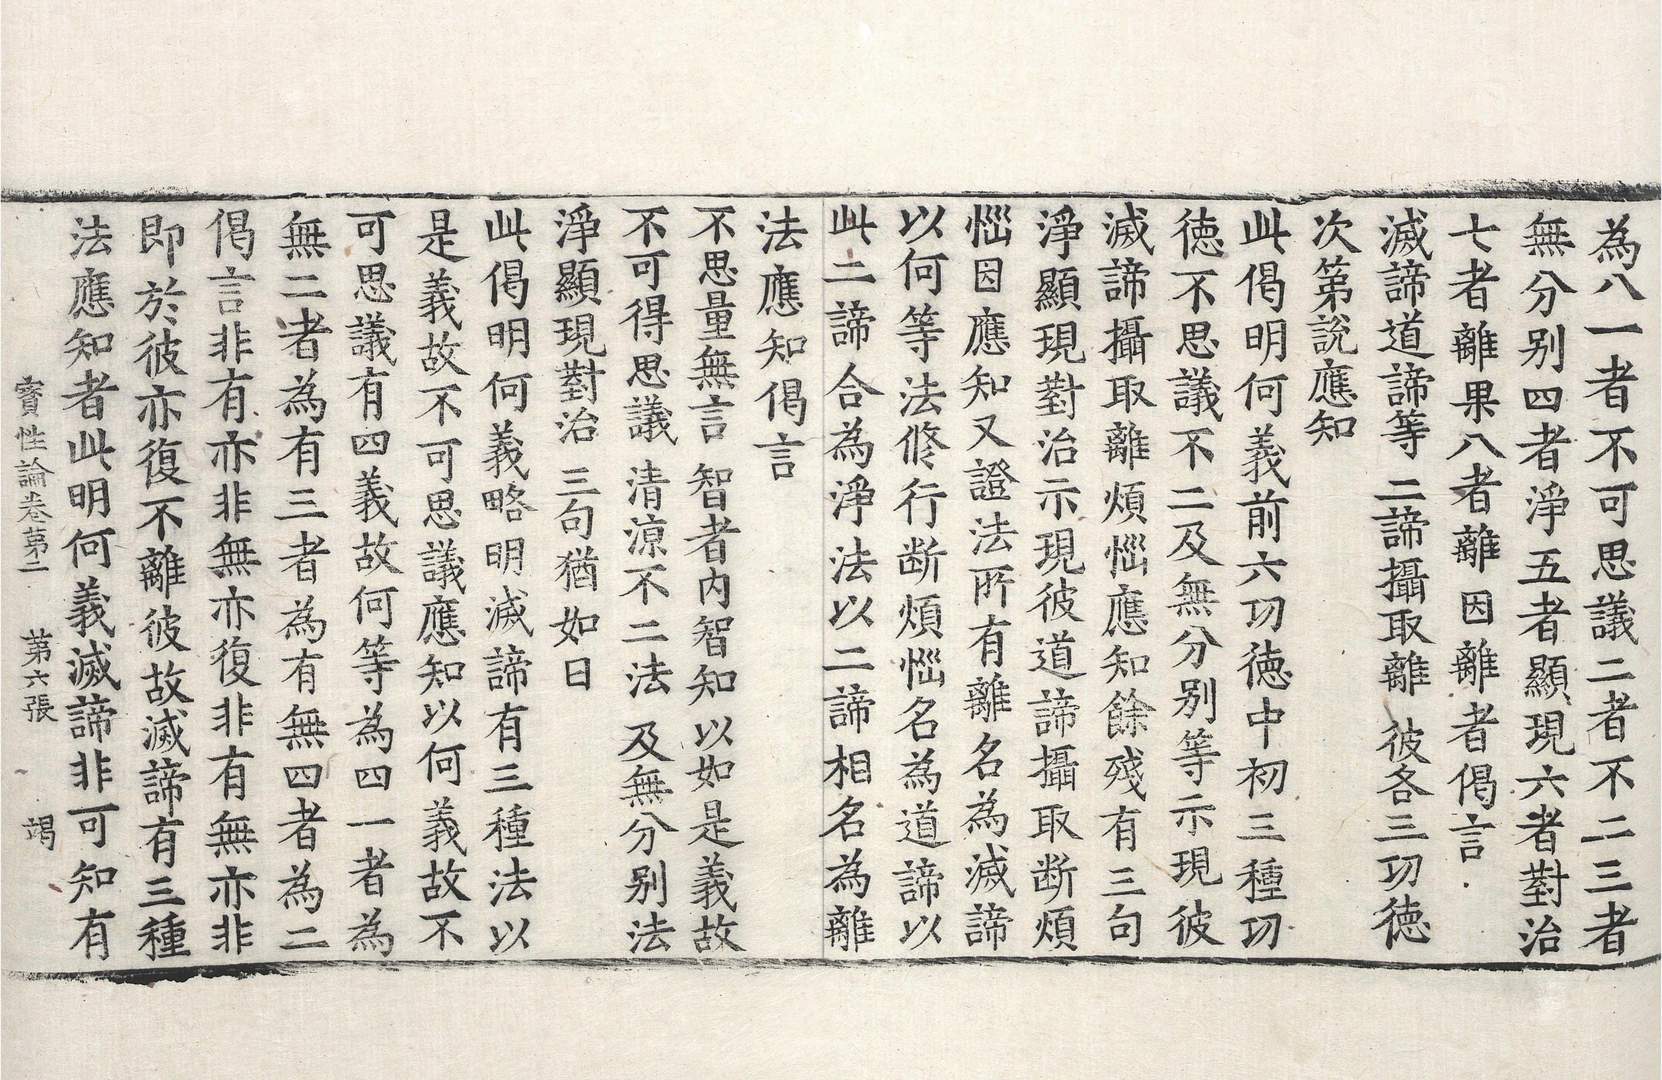 為八一者不可思議二者不二三者
無分別四者淨五者顯現六者對治
七者離果八者離因離者偈言
滅諦道諦等 二諦攝取離 彼各三功德
次第說應知
此偈明何義前六功徳中初三種功
徳不思議不二及無分別等示現彼
滅諦攝取離煩惱應知餘殘有三句
淨顯現對治示現彼道諦攝取断煩
惱因應知又證法所有離名為滅諦
以何等法修行断煩惱名為道諦以
此二諦合為淨法以二諦相名為離
法應知偈言
不思量無言 智者內智知 以如是義故
不可得思議 清涼不二法 及無分別法
淨顯現對治 三句猶如日
此偈明何義略明滅諦有三種法以
是義故不可思議應知以何義故不
可思議有四義故何等為四一者為
無二者為有三者為有無四者為二
偈言非有亦非無亦復非有無亦非
即於彼亦復不離彼故滅諦有三種
法應知者此明何義滅諦非可知有
寶性論卷第二 第六張 竭